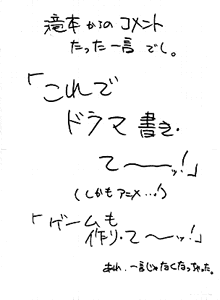 滝本からのコメント
たった一言でし。
「これで
ドラマ書き・
て〜〜ッ!」
(しかもアニメ…!)
「ゲームも
作り・て〜〜ッ!」
あれ、一言じゃなくなっちゃった。